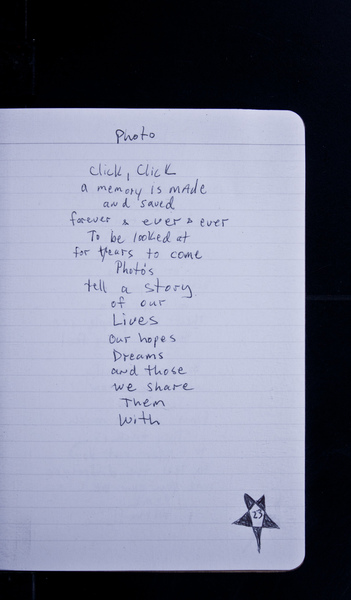 Photo
Click, Click
a memory is made
and saved
forever & ever & ever
To be looked at
for years to come
Photo's
tell a story
of our
Lives
our hopes
Dreams
and those
we share
Them
With
23